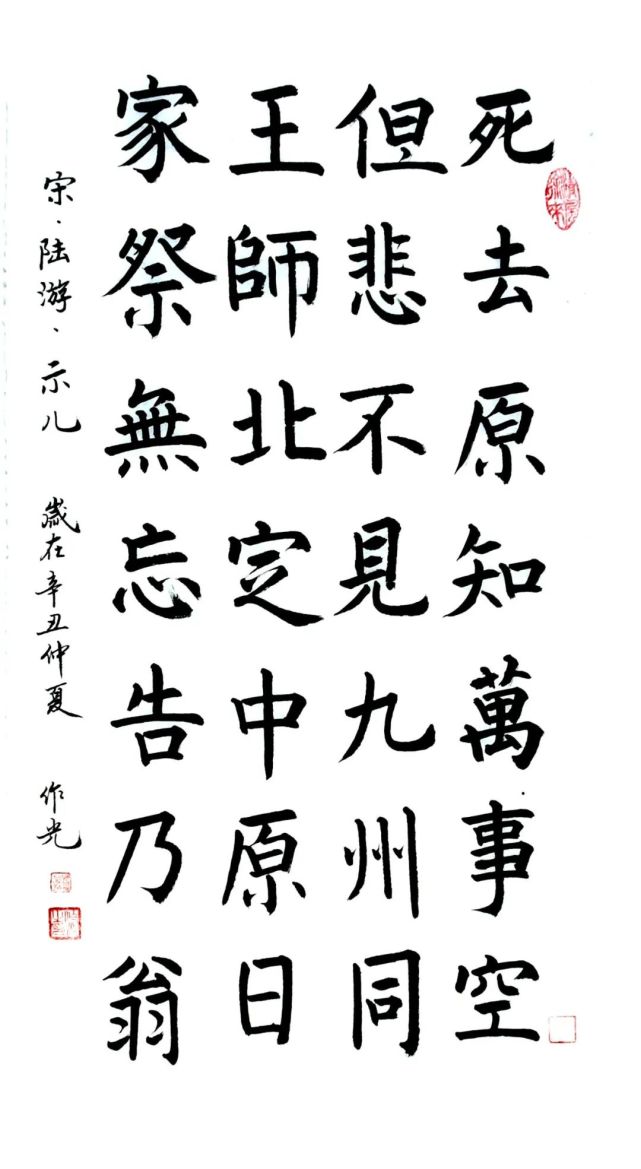 死去原知萬事空
但悲不見九州同
王師北定中原日
家祭無忘告乃翁
宋、陆游、示儿 歲在辛丑仲夏 作光